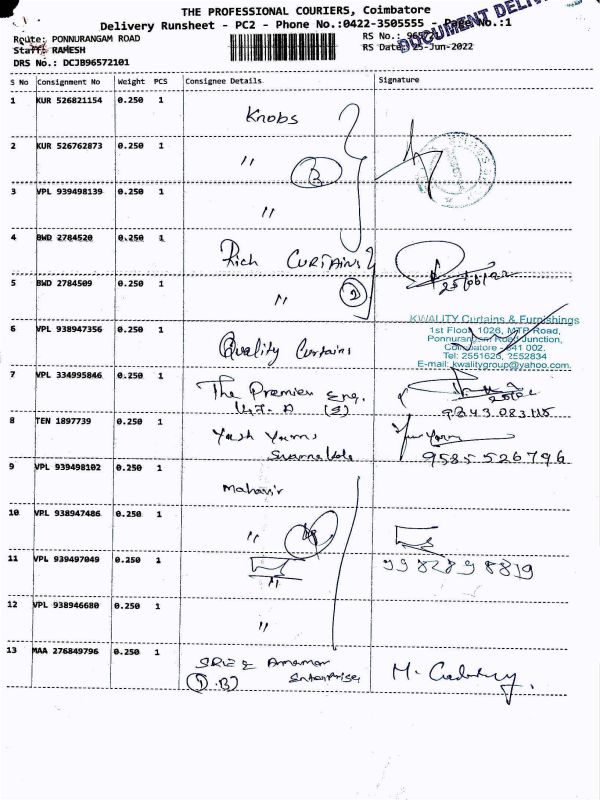 THE PROFESSIONAL COURIERS, Coimbatore
Delivery Runsheet - PC2 - Phone No.:0422-3505555 - Page No.:1
DOCUMENT
Route: PONNURANGAM ROAD
RS No.:
Staff: RAMESH
RS Date: 25-Jun-2022
DRS No.: DCJB96572101
S No Consignment No Weight PCS Consignee Details Signature
1 KUR 526821154 0.250 1 Knobs
2 KUR 526762873 0.250 1 "
3 VPL 939498139 0.250 1 "
4 BWD 2784520 0.250 1 Rich CURTAINS
5 BWD 2784509 0.250 1 "
25/06/22
6 VPL 938947356 0.250 1 Quality Curtains
KWALITY Curtains & Furnishings
1st Floor, 1026, MTP Road,
Ponnurangam Road Junction,
Coimbatore - 641 002.
Tel: 2551625, 2552834
E-mail: kwalitygroup@yahoo.com.
7 VPL 334995846 0.250 1 The Premier Eng.
8 TEN 1897739 0.250 1 Yash Yarns
9585526796
9 VPL 939498102 0.250 1 Mahavir
10 VPL 938947486 0.250 1 "
11 VPL 939497049 0.250 1 "
9982898819
12 VPL 938946680 0.250 1 "
13 MAA 276849796 0.250 1
Enterprises